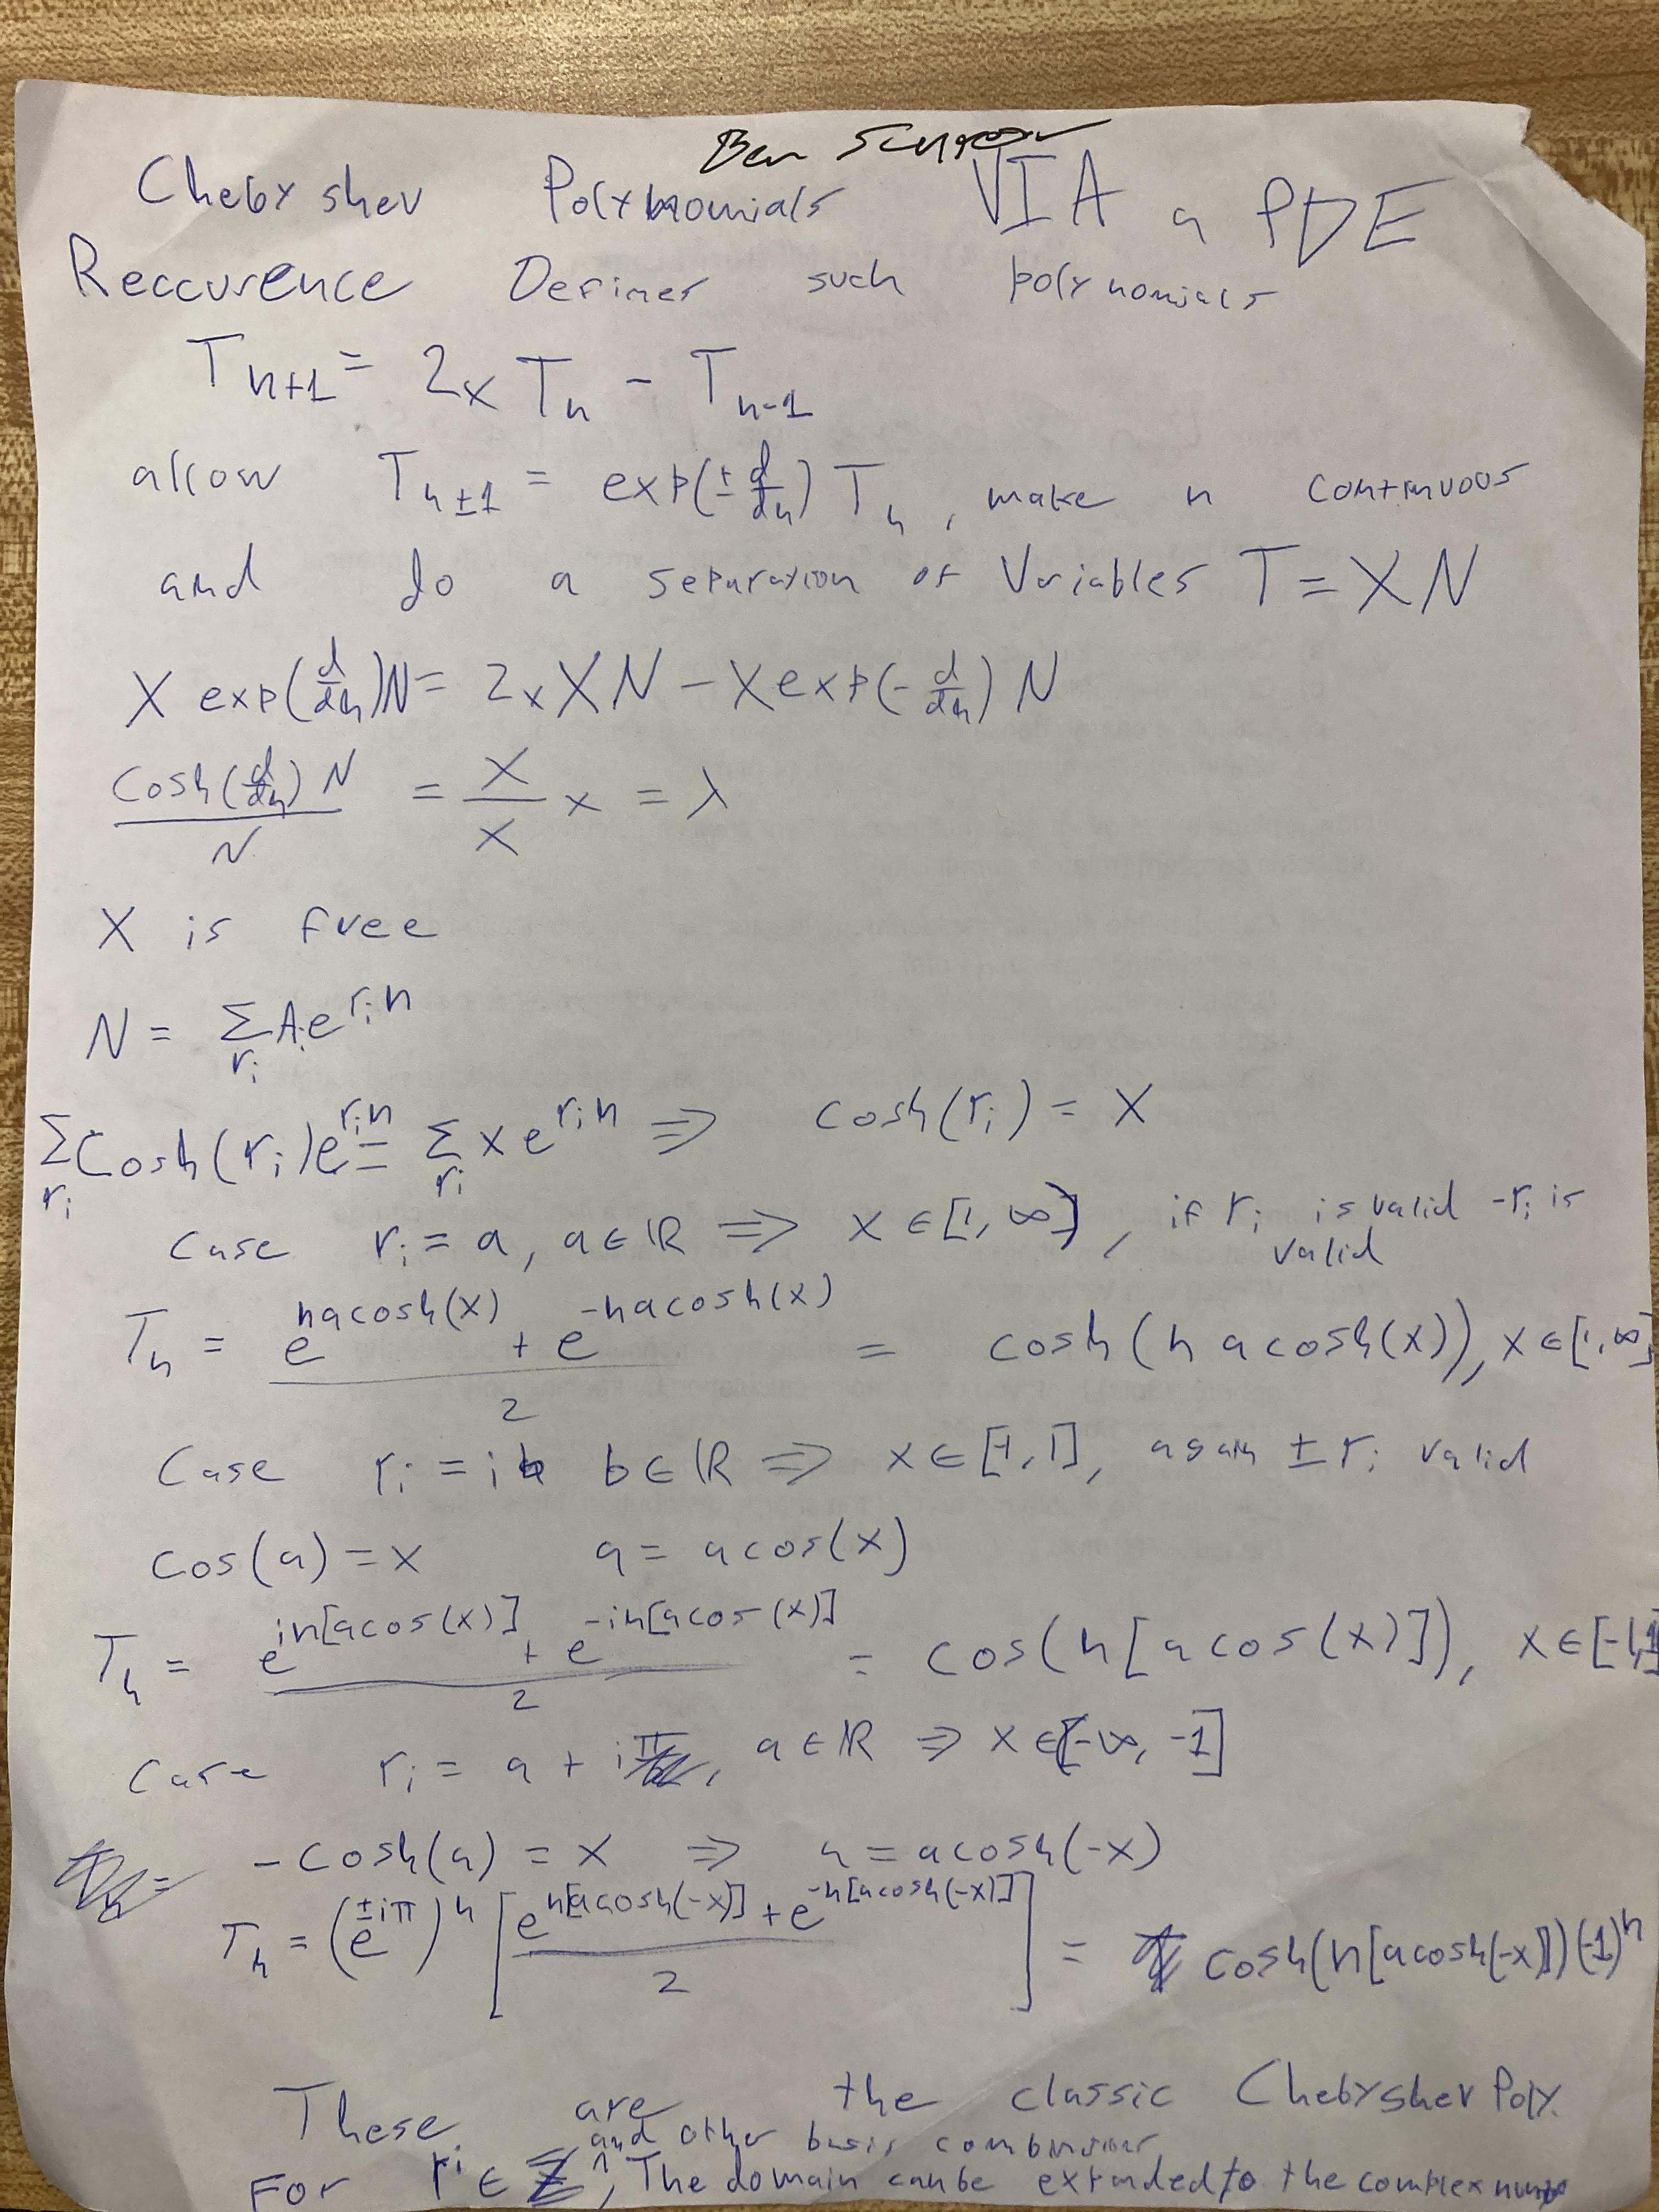 Ben
Chebyshev Polynomials VIA a PDE
Reccurence Defines such polynomials
T_{n+1} = 2x T_n - T_{n-1}
allow T_{n±1} = exp(± d/dn) T_n, make n continuous
and do a separation of Variables T = XN
X exp(d/dn)N = 2x XN - X exp(-d/dn) N
cosh(d/dn) N / N = X/X x = λ
X is free
N = Σ_{r_i} A_i e^{r_i n}
Σ_{r_i} Cosh(r_i) e^{r_i n} = Σ_{r_i} x e^{r_i n} ⇒ cosh(r_i) = x
Case r_i = a, a ∈ ℝ ⇒ x ∈ [1, ∞), if r_i is valid -r_i is
valid
T_n = (e^{n acosh(x)} + e^{-n acosh(x)}) / 2 = cosh(n acosh(x)), x ∈ [1, ∞]
Case r_i = ib b ∈ ℝ ⇒ x ∈ [-1, 1], again ± r_i valid
cos(a) = x a = acos(x)
T_n = (e^{in[acos(x)]} + e^{-in[acos(x)]}) / 2 = cos(n[acos(x)]), x ∈ [-1,1]
Case r_i = a + iπ, a ∈ ℝ ⇒ x ∈ [-∞, -1]
-cosh(a) = x ⇒ a = acosh(-x)
T_n = (e^{±iπ})^n [(e^{n[acosh(-x)]} + e^{-n[acosh(-x)]}) / 2] = cosh(n[acosh(-x)])(-1)^n
These are the classic Chebyshev Poly.
and other basis
For r_i ∈ , The domain can be expanded to the complex